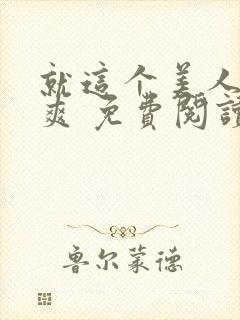 就這个美人
爽 免費閱讀
鲁尔蒙德